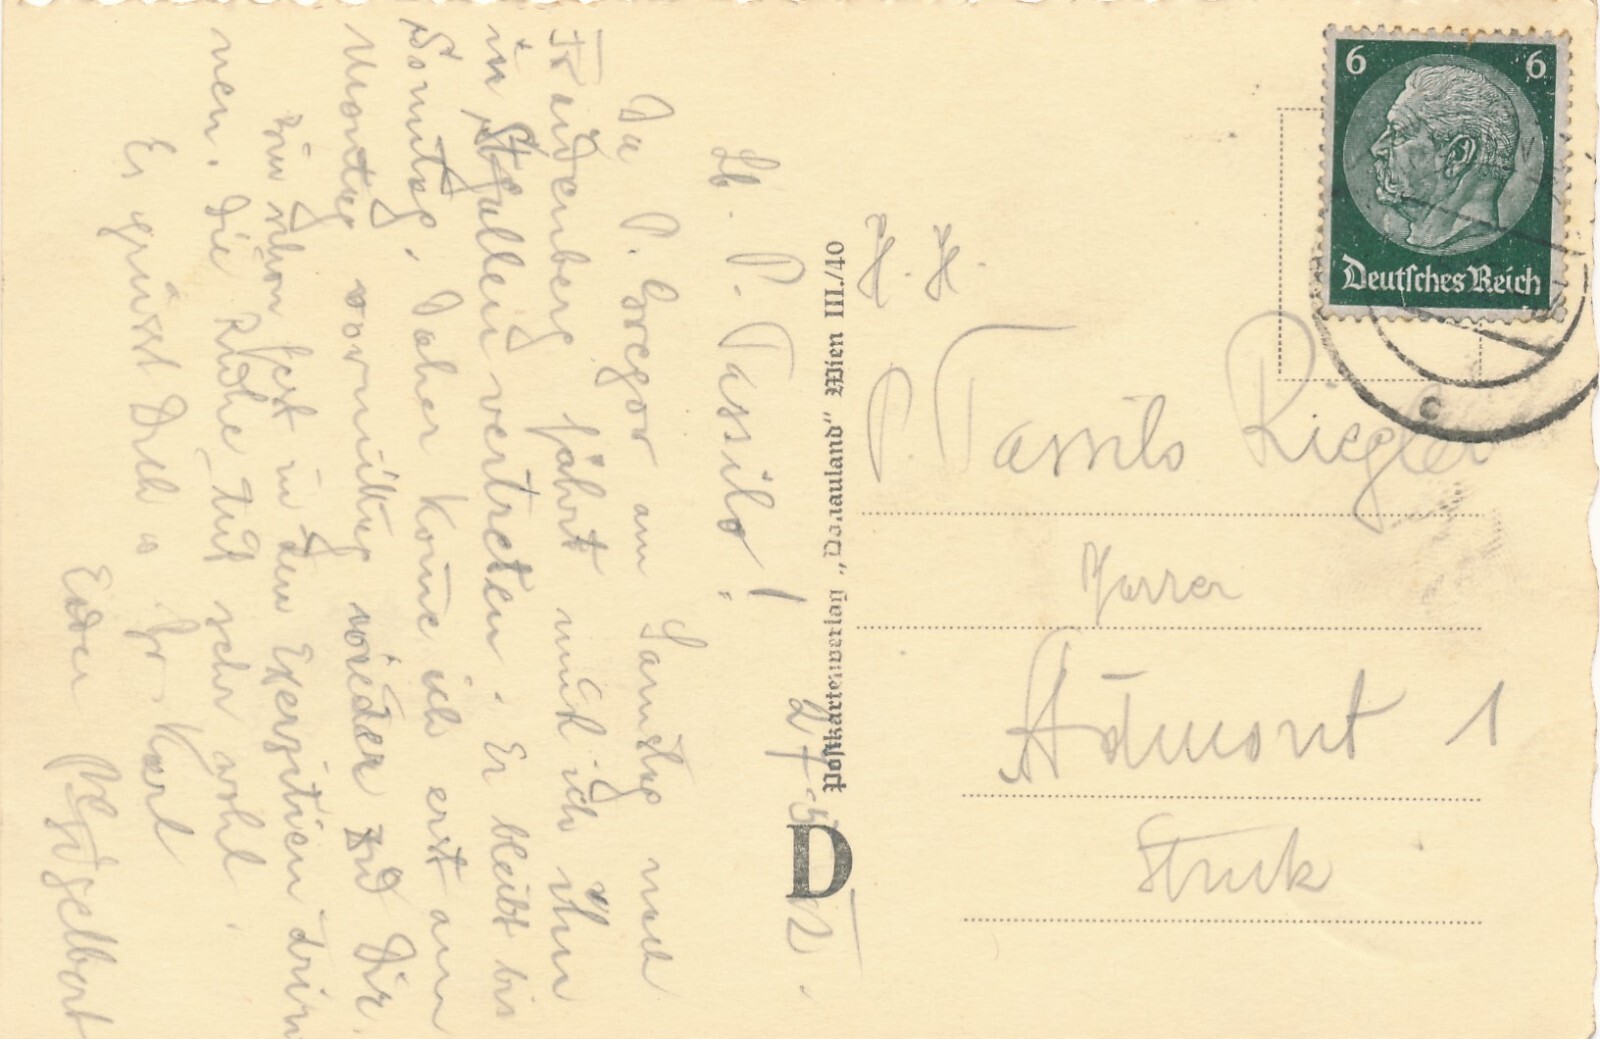 Lb. P. Tassilo!
Da P. Gregor am Samstag nach
Frauenberg fährt muß ich ihn
in St. Gallen vertreten. Er bleibt bis
Sonntag. Daher kome ich erst am
Montag vormittag wieder zu Dir.
Bin schon fest in den Exerzitien drin
nen. Die Ruhe tut sehr wohl.
Es grüsst Dich u. Hr. Karl
Euer P. Engelbert
27.5.
Postkartenverlag „Donauland" Wien III./40
D
6 6
Deutsches Reich
H. H.
P. Tassilo Riegler
Pfarrer
Admont 1
Stmk